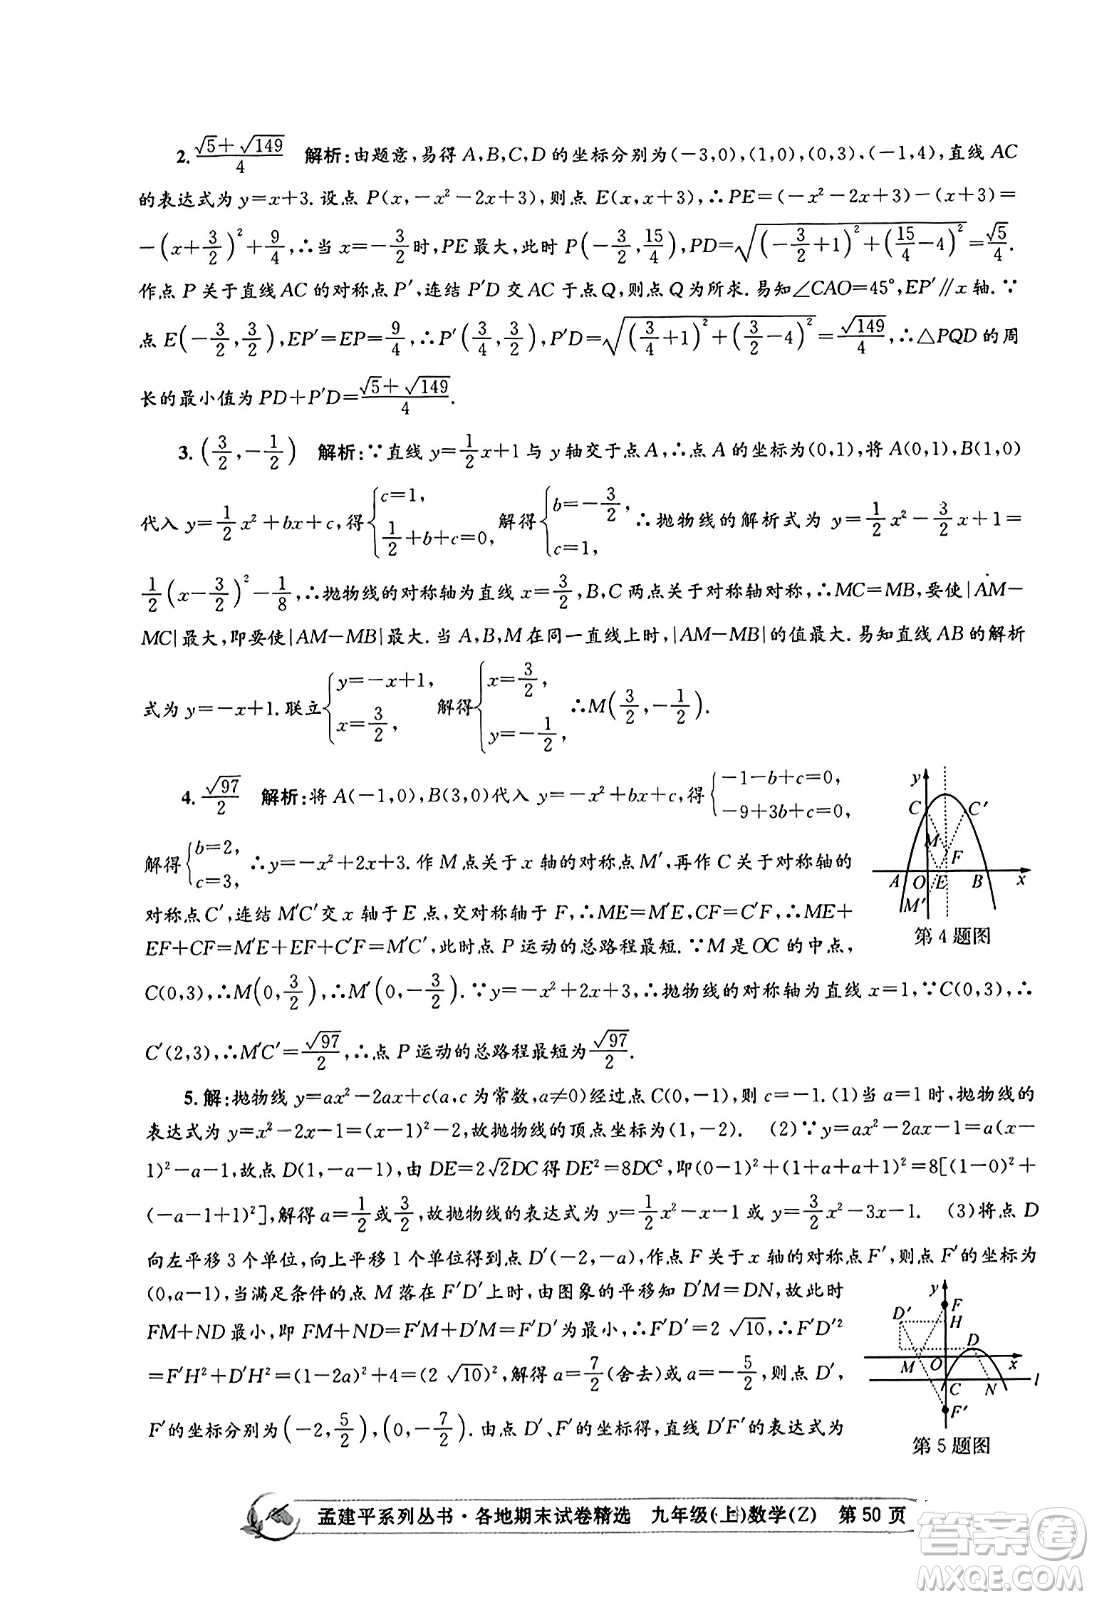 2. (√5+√149)/4 解析:由题意,易得 A,B,C,D 的坐标分别为(-3,0),(1,0),(0,3),(-1,4),直线 AC
的表达式为 y=x+3. 设点 P(x,-x²-2x+3),则点 E(x,x+3),∴PE=(-x²-2x+3)-(x+3)=
-(x+3/2)²+9/4,∴当 x=-3/2时,PE 最大,此时 P(-3/2,15/4),PD=√((-3/2+1)²+(15/4-4)²)=√5/4.
作点 P 关于直线 AC 的对称点 P′,连结 P′D 交 AC 于点 Q,则点 Q 为所求. 易知∠CAO=45°,EP′∥x 轴. ∵
点 E(-3/2,3/2),EP′=EP=9/4,∴P′(3/4,3/2),∴P′D=√((3/4+1)²+(3/2-4)²)=√149/4,∴△PQD 的周
长的最小值为 PD+P′D=(√5+√149)/4.
3. (3/2,-1/2) 解析:∵直线 y=1/2x+1 与 y 轴交于点 A,∴点 A 的坐标为(0,1),将 A(0,1),B(1,0)
代入 y=1/2x²+bx+c,得{c=1, 1/2+b+c=0, 解得{b=-3/2, c=1, ∴抛物线的解析式为 y=1/2x²-3/2x+1=
1/2(x-3/2)²-1/8,∴抛物线的对称轴为直线 x=3/2,B,C 两点关于对称轴对称,∴MC=MB,要使|AM-
MC|最大,即要使|AM-MB|最大. 当 A,B,M 在同一直线上时,|AM-MB|的值最大. 易知直线 AB 的解析
式为 y=-x+1. 联立{y=-x+1, x=3/2, 解得{x=3/2, y=-1/2, ∴M(3/2,-1/2).
4. √97/2 解析:将 A(-1,0),B(3,0)代入 y=-x²+bx+c,得{-1-b+c=0, -9+3b+c=0,
解得{b=2, c=3, ∴y=-x²+2x+3. 作 M 点关于 x 轴的对称点 M′,再作 C 关于对称轴的
对称点 C′,连结 M′C′交 x 轴于 E 点,交对称轴于 F,∴ME=M′E,CF=C′F,∴ME+
EF+CF=M′E+EF+C′F=M′C′,此时点 P 运动的总路程最短. ∵M 是 OC 的中点,
C(0,3),∴M(0,3/2),∴M′(0,-3/2). ∵y=-x²+2x+3,∴抛物线的对称轴为直线 x=1,∵C(0,3),∴
C′(2,3),∴M′C′=√97/2,∴点 P 运动的总路程最短为√97/2.
y
C
C′
M
F
A
O
E
B
x
M′
第 4 题图
5. 解:抛物线 y=ax²-2ax+c(a,c 为常数,a≠0)经过点 C(0,-1),则 c=-1. (1)当 a=1 时,抛物线的
表达式为 y=x²-2x-1=(x-1)²-2,故抛物线的顶点坐标为(1,-2). (2)∵y=ax²-2ax-1=a(x-
1)²-a-1,故点 D(1,-a-1),由 DE=2√2DC 得 DE²=8DC²,即(0-1)²+(1+a+a+1)²=8[(1-0)²+
(-a-1+1)²],解得 a=1/2或3/2,故抛物线的表达式为 y=1/2x²-x-1 或 y=3/2x²-3x-1. (3)将点 D
向左平移 3 个单位,向上平移 1 个单位得到点 D′(-2,-a),作点 F 关于 x 轴的对称点 F′,则点 F′的坐标为
(0,a-1),当满足条件的点 M 落在 F′D′上时,由图象的平移知 D′M=DN,故此时
FM+ND 最小,即 FM+ND=F′M+D′M=F′D′=2 √10,故此时 F′D′²
=F′H²+D′H²=(1-2a)²+4=(2 √10)²,解得 a=7/2(舍去)或-5/2,则点 D′、
F′的坐标分别为(-2,5/2),(0,-7/2). 由点 D′、F′的坐标得,直线 D′F′的表达式为
y
F
D′
H
D
M
O
x
C
N
l
F′
第 5 题图
孟建平系列丛书·各地期末试卷精选 九年级(上)数学(Z) 第 50 页
答案圈
MXQE.COM